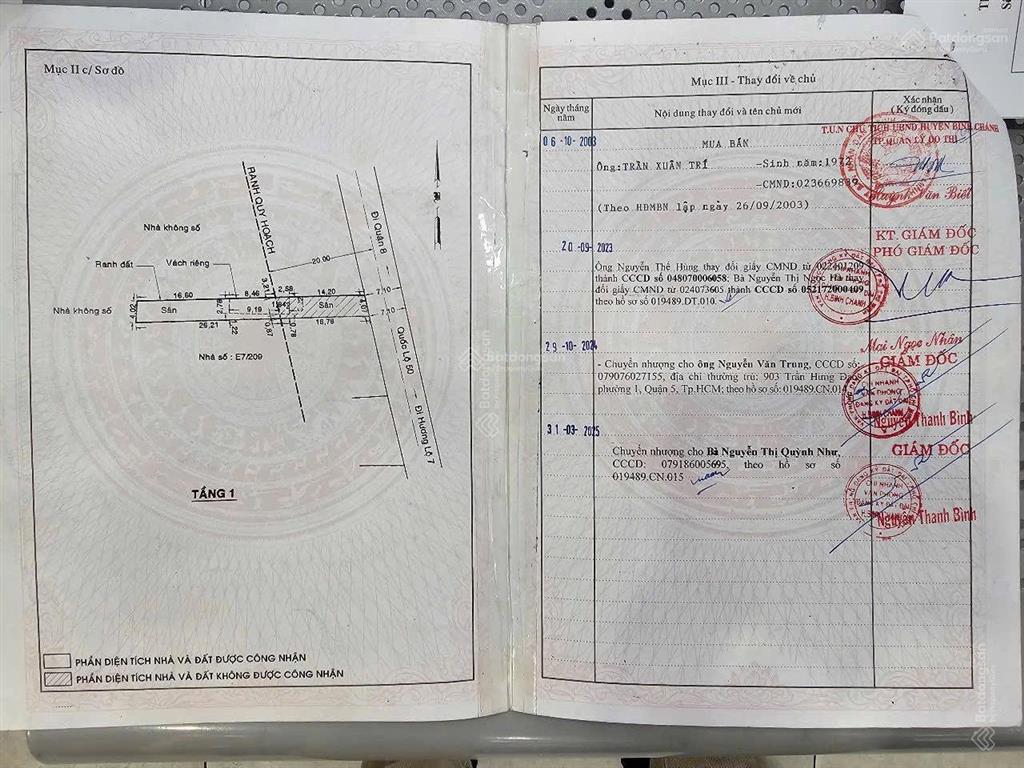 Mục II c/ Sơ đồ
RANH QUY HOẠCH
ĐI QUẬN 8
Nhà không số
20.00
Ranh đất
Vách riêng
16,60
8,46
3,21
2,58
14,20
4,02
Sân
2,78
9,19
Sân
4,07
7,10
7,10
Nhà không số
26,21
1,22
0,87
0,78
18,76
Nhà số : E7/209
QUỐC LỘ 50
ĐI HƯƠNG LỘ 7
TẦNG 1
PHẦN DIỆN TÍCH NHÀ VÀ ĐẤT ĐƯỢC CÔNG NHẬN
PHẦN DIỆN TÍCH NHÀ VÀ ĐẤT KHÔNG ĐƯỢC CÔNG NHẬN
Mục III - Thay đổi về chủ
Ngày tháng năm
Nội dung thay đổi và tên chủ mới
Xác nhận
(Ký đóng dấu)
06-10-2003
MUA BÁN
T.U.N CHỦ TỊCH UBND HUYỆN BÌNH CHÁNH
TP QUẢN LÝ ĐÔ THỊ
Ông:TRẦN XUÂN TRÍ -Sinh năm:1972
-CMND:023669889
(Theo HĐMBN lập ngày 26/09/2003)
Huỳnh Văn Biết
20-09-2023
KT. GIÁM ĐỐC
PHÓ GIÁM ĐỐC
Ông Nguyễn Thế Hùng thay đổi giấy CMND từ
thành CCCD số 048070006058; Bà Nguyễn Thị Ngọc Hà thay
đổi giấy CMND từ 024073605 thành CCCD số 052172000409,
theo hồ sơ số 019489.DT.010.
H.BÌNH CHÁNH
Mai Ngọc Nhân
29-10-2024
GIÁM ĐỐC
- Chuyển nhượng cho ông Nguyễn Văn Trung, CCCD số:
079076027155, địa chỉ thường trú: 903 Trần Hưng Đạo,
phường 1, Quận 5, Tp.HCM; theo hồ sơ số: 019489.CN.014
CHI NHÁNH
VĂN PHÒNG
ĐĂNG KÝ ĐẤT ĐAI
H.BÌNH CHÁNH
Nguyễn Thanh Bình
31-03-2025
GIÁM ĐỐC
Chuyển nhượng cho Bà Nguyễn Thị Quỳnh Như,
CCCD: 079186005695, theo hồ sơ số
019489.CN.015
CHI NHÁNH
VĂN PHÒNG
ĐĂNG KÝ ĐẤT ĐAI
H.BÌNH CHÁNH
Nguyễn Thanh Bình
Batdongsan